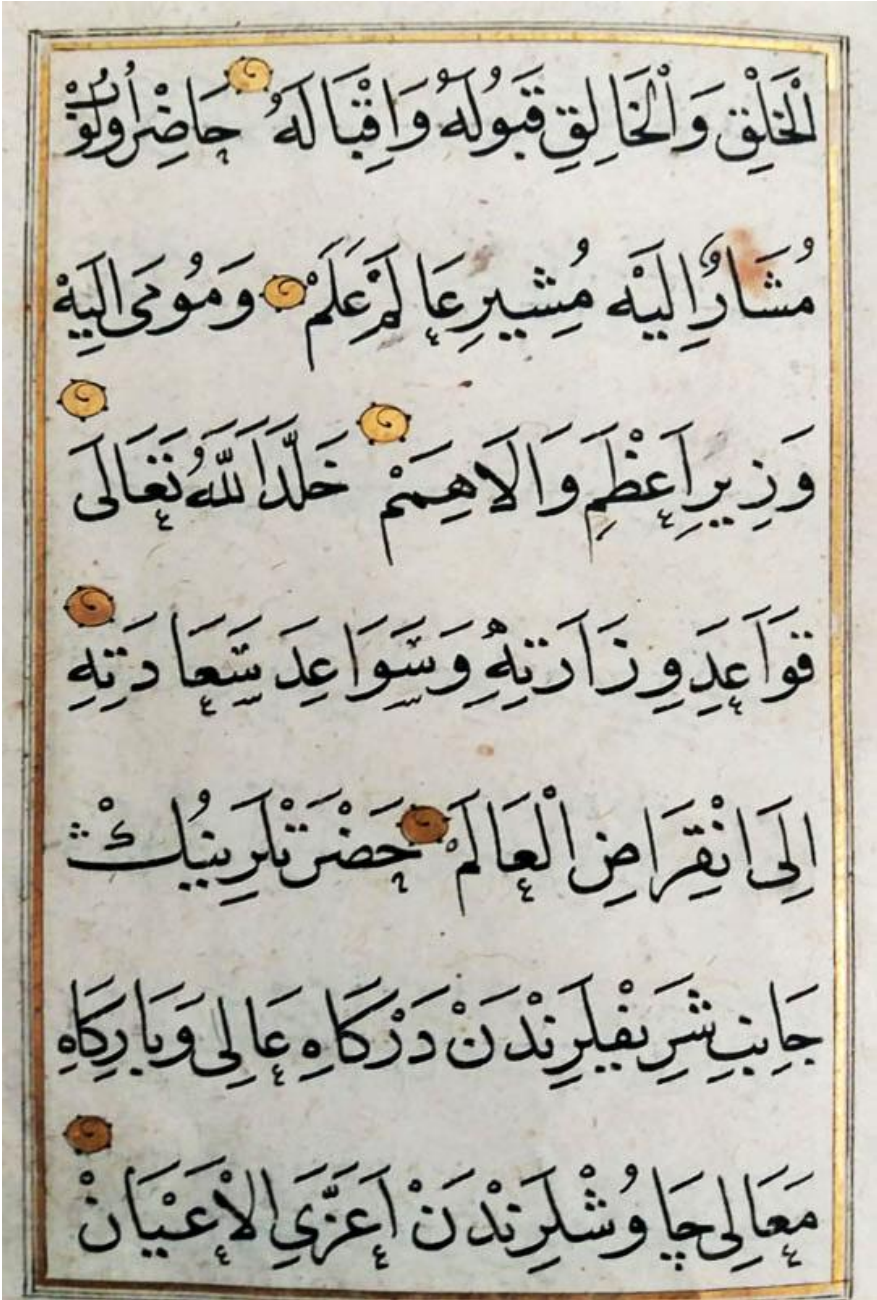 الْخَلْقِ وَالْخَالِقِ قَبُولَهُ وَاِقْبَالَهُ حَاضِرْ اُولُوبْ
مُشَارٌ اِلَيْه مُشِيرِ عَالَمْ عَلَمْ وَمُومَى اِلَيِهْ
وَزِيرِ اَعْظَمِ وَالَاهِمَمْ خَلَّدَ اللّٰهُ تَعَالَى
قَوَاعِدَ وِزَارَتِهِ وَسَوَاعِدَ سَعَادَتِهِ
اِلَى انْقِرَاضِ الْعَالَمْ حَضْرَتْلَرِينُيكْ
جَانِبِ شَرِيفْلَرِنْدَنْ دَرْكَاهِ عَالِى وَبَارِكَاهِ
مَعَالِى چَاوُشْلَرِنْدَنْ اَعَزَّىِ الْاَعْيَانْ